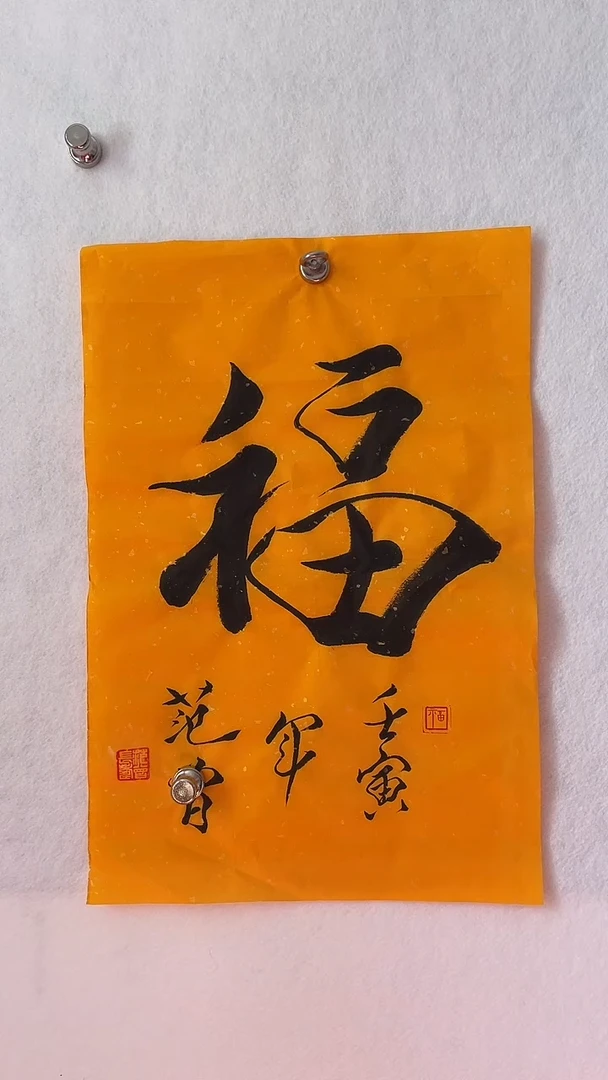 福
壬寅
年
范